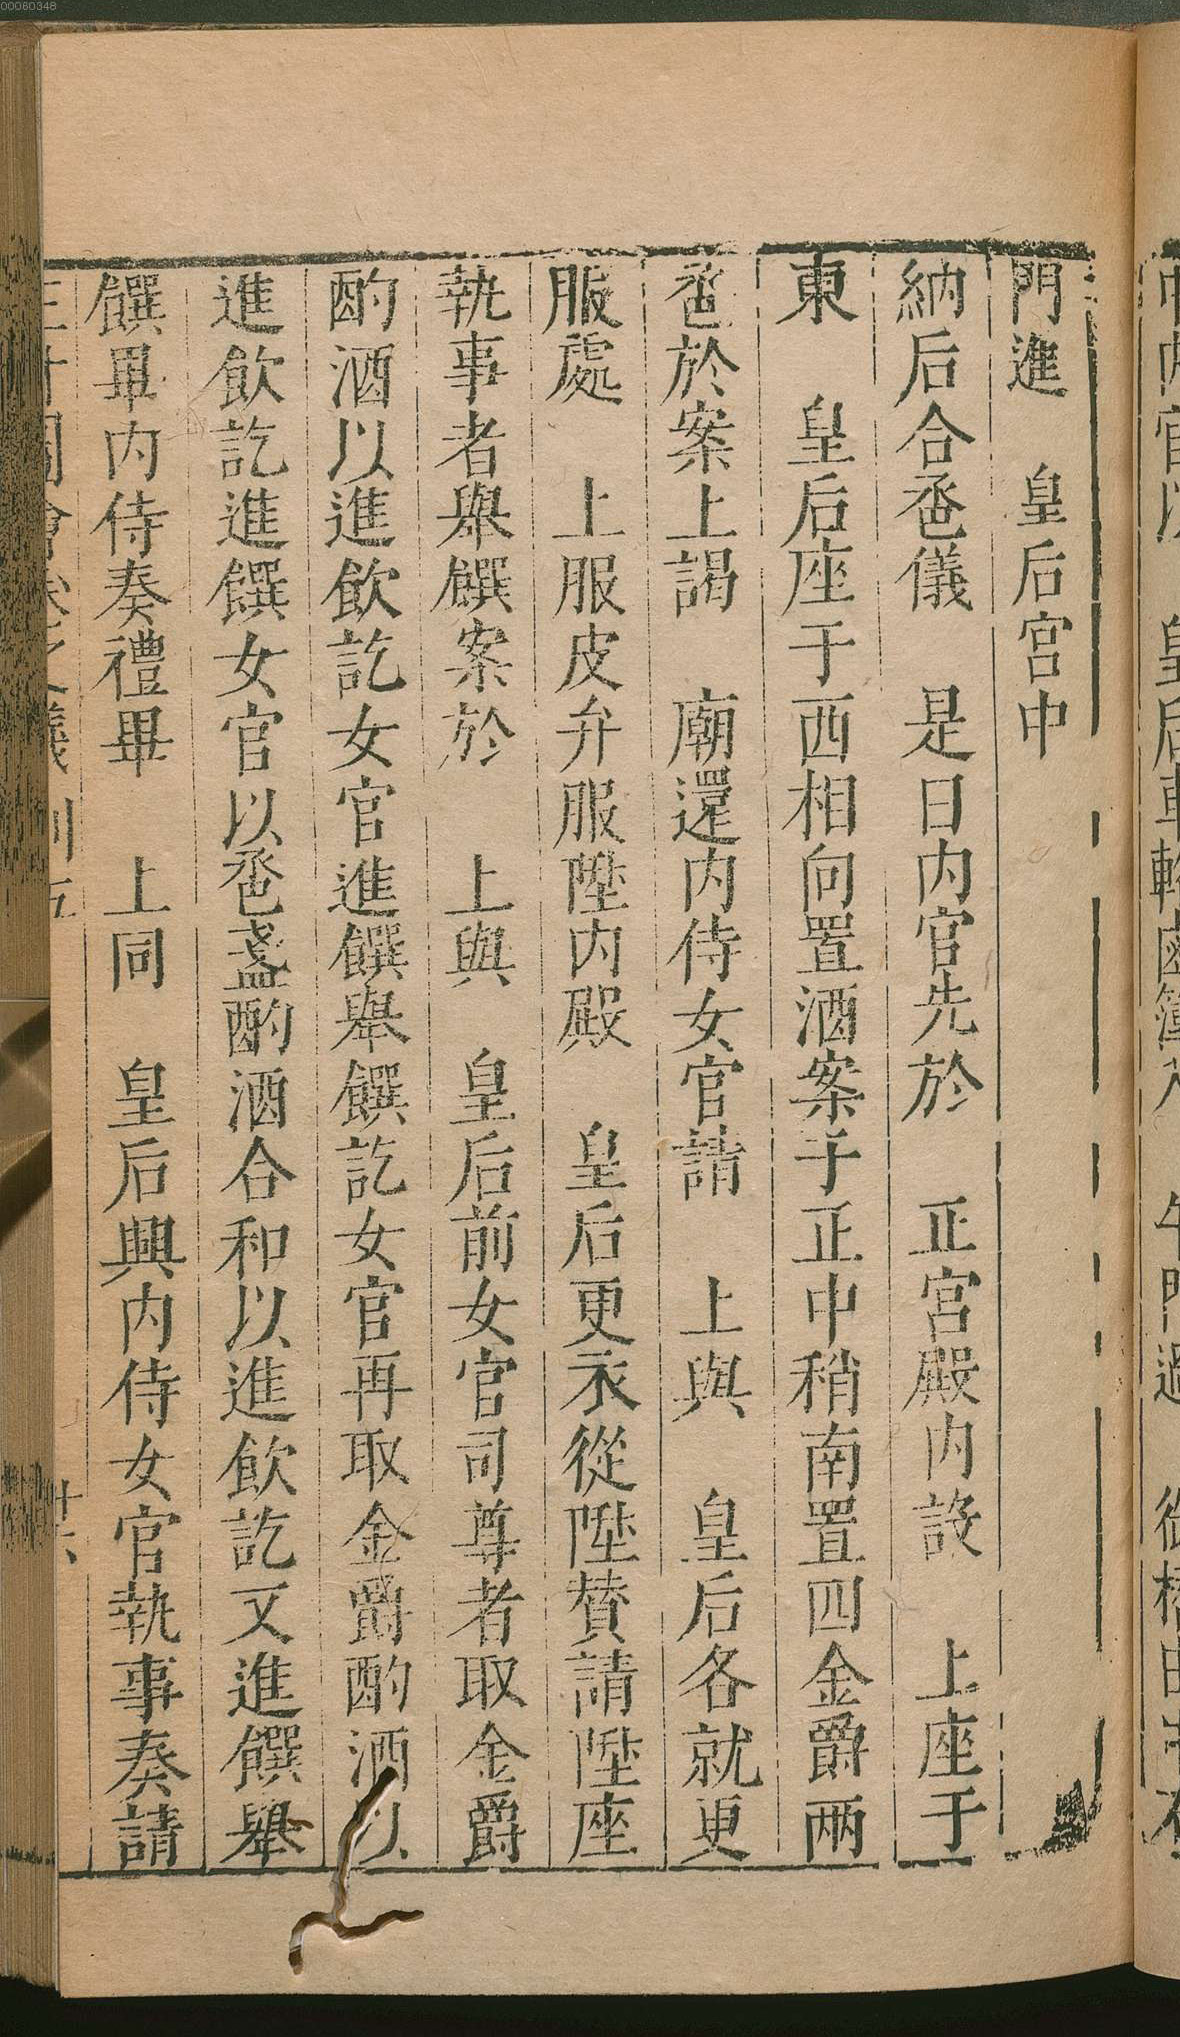 00060348
門進　皇后宮中
納后合巹儀　是日内官先於　正宮殿内設　上座于
東　皇后座于西相向置酒案于正中稍南置四金爵兩
巹於案上謁　廟還内侍女官請　上與　皇后各就更
服處　上服皮弁服陞内殿　皇后更衣從陞贊請陞座
執事者舉饌案於　上與　皇后前女官司尊者取金爵
酌酒以進飲訖女官進饌舉饌訖女官再取金爵酌酒以
進飲訖進饌女官以巹盞酌酒合和以進飲訖又進饌舉
饌畢内侍奏禮畢　上同　皇后興内侍女官執事奏請